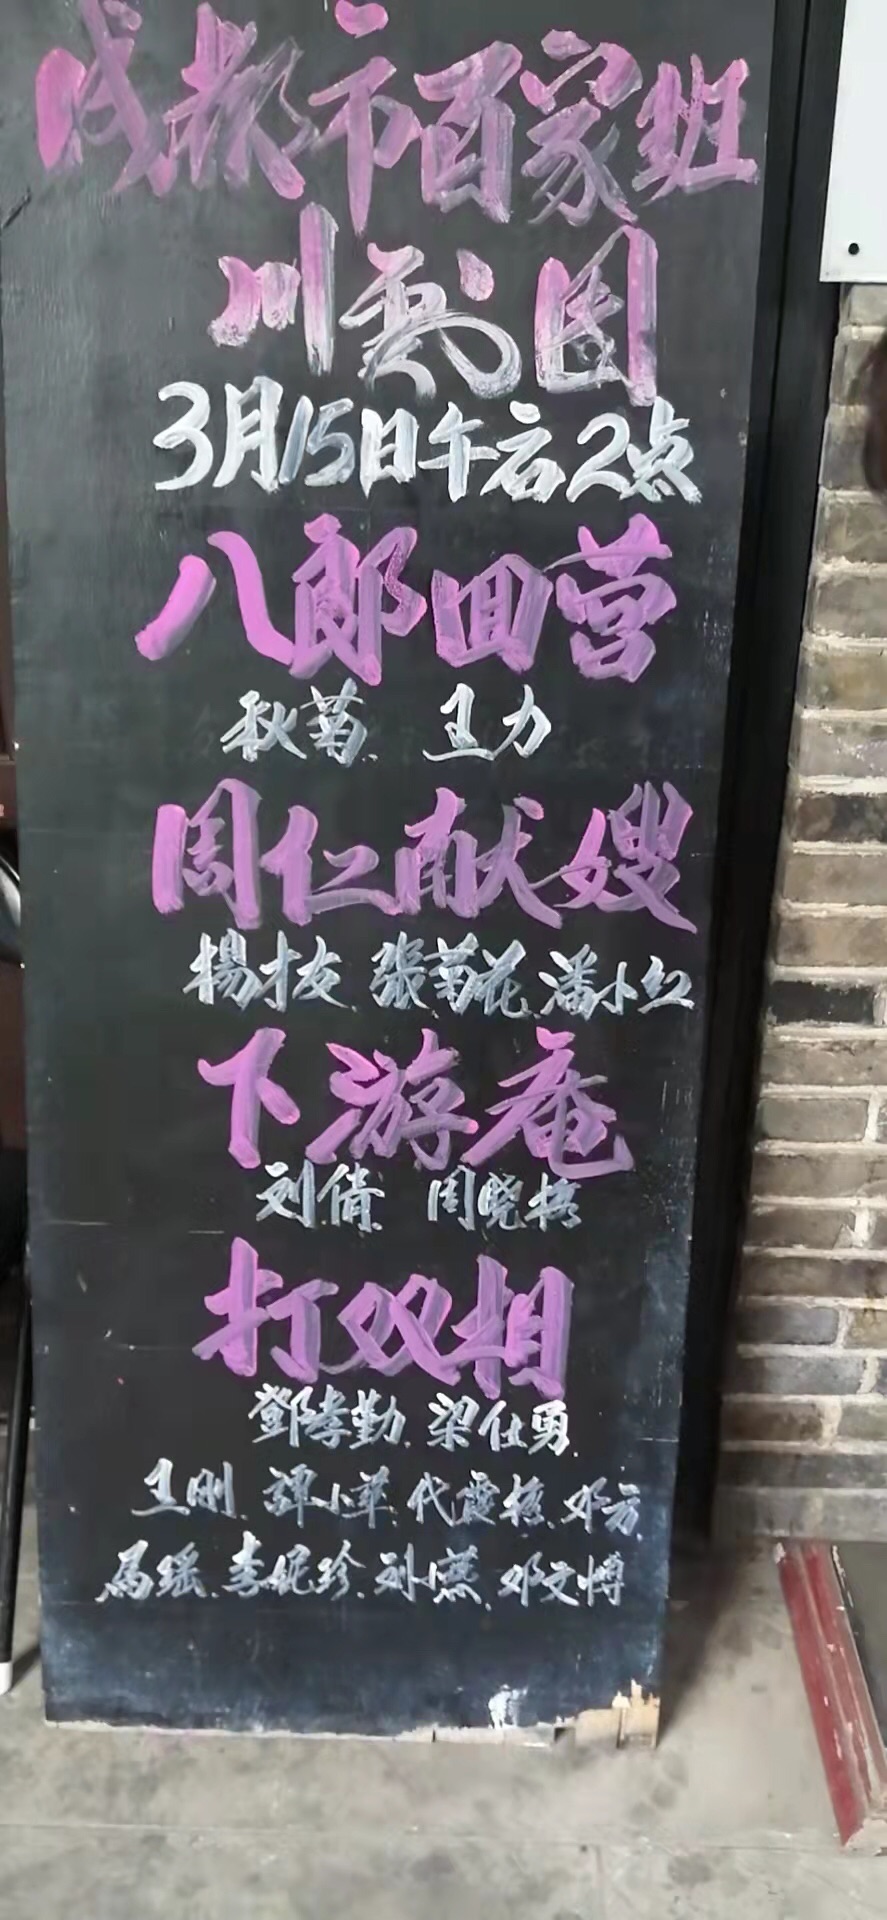 成都市百家班
川剧团
3月15日午后2点
八郎回营
秋菊 王力
周仁献嫂
楊才友 張菊花 潘小红
下游庵
刘倩 周晓梅
打双相
鄧孝勤 梁仕勇
王刚 譚小苹 代霞 邓方
馬瑶 李妮珍 刘小燕 邓文博